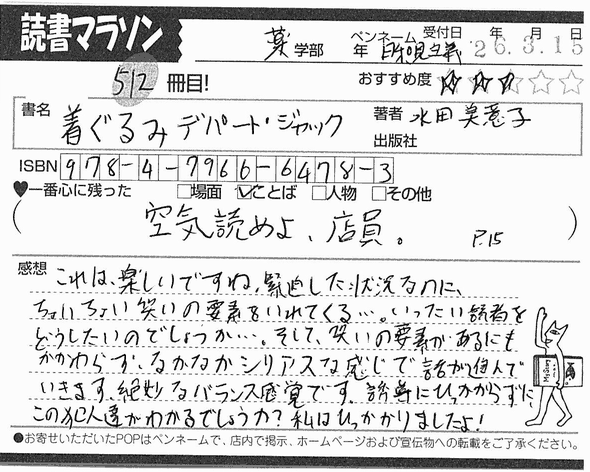 読書マラソン
薬学部 年 ペンネーム 受付日 年 月 日
26.3.15
512冊目! おすすめ度 ☆☆☆☆☆
書名 着ぐるみデパート・ジャック 著者 水田美意子
出版社
ISBN 978-4-7966-6478-3
♥一番心に残った □場面 ☑ことば □人物 □その他
(空気読めよ、店員。 P.15)
感想 これは、楽しいですね。緊迫した状況なのに、
ちょいちょい笑いの要素をいれてくる…。いったい読者を
どうしたいのでしょうか…。そして、笑いの要素があるにも
かかわらず、なかなかシリアスな感じで話が進んで
いきます。絶妙なバランス感覚です。誘導にひっかからずに、
この犯人達がわかるでしょうか?私はひっかかりましたよ!
●お寄せいただいたPOPはペンネームで、店内で掲示、ホームページおよび宣伝物への転載をご了承ください。